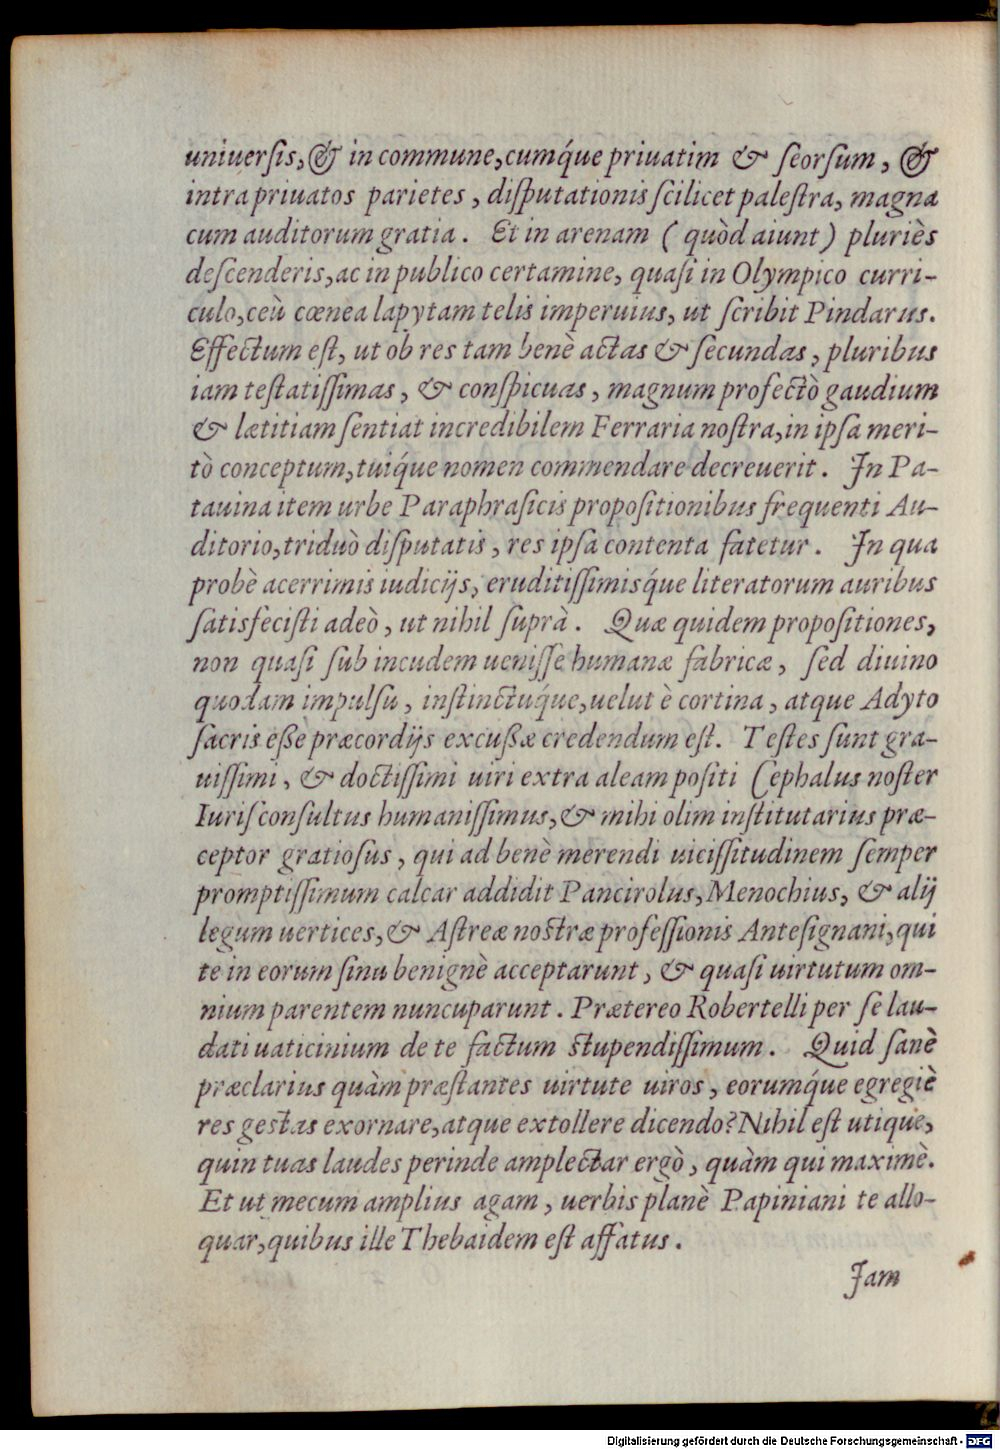 uniuersis, & in commune, cumq́ue priuatim & seorsum, &
intra priuatos parietes, disputationis scilicet palestra, magna
cum auditorum gratia. Et in arenam (quòd aiunt) pluriès
descenderis, ac in publico certamine, quasi in Olympico curri-
culo, ceù cœnea lapytam telis imperuius, ut scribit Pindarus.
Effectum est, ut ob res tam benè actas & secundas, pluribus
iam testatissimas, & conspicuas, magnum profectò gaudium
& lætitiam sentiat incredibilem Ferraria nostra, in ipsa meri-
tò conceptum, tuiq́ue nomen commendare decreuerit. In Pa-
tauina item urbe Paraphrasicis propositionibus frequenti Au-
ditorio, triduò disputatis, res ipsa contenta fatetur. In qua
probè acerrimis iudicijs, eruditissimisq́ue literatorum auribus
satisfecisti adeò, ut nihil suprà. Quæ quidem propositiones,
non quasi sub incudem uenisse humanæ fabricæ, sed diuino
quodam impulsu, instinctuq́ue, uelut è cortina, atque Adyto
sacris eßé præcordijs excußæ credendum est. Testes sunt gra-
uissimi, & doctissimi uiri extra aleam positi Cephalus noster
Iurisconsultus humanissimus, & mihi olim institutarius præ-
ceptor gratiosus, qui ad benè merendi uicissitudinem semper
promptissimum calcar addidit Pancirolus, Menochius, & alij
legum uertices, & Astreæ nostræ professionis Antesignani, qui
te in eorum sinu benignè acceptarunt, & quasi uirtutum om-
nium parentem nuncuparunt. Prætereo Robertelli per se lau-
dati uaticinium de te factum stupendissimum. Quid sanè
præclarius quàm præstantes uirtute uiros, eorumq́ue egregiè
res gestas exornare, atque extollere dicendo? Nihil est utique,
quin tuas laudes perinde amplectar ergò, quàm qui maximè.
Et ut mecum amplius agam, uerbis planè Papiniani te allo-
quar, quibus ille Thebaidem est affatus.
Jam
Digitalisierung gefördert durch die Deutsche Forschungsgemeinschaft - DFG